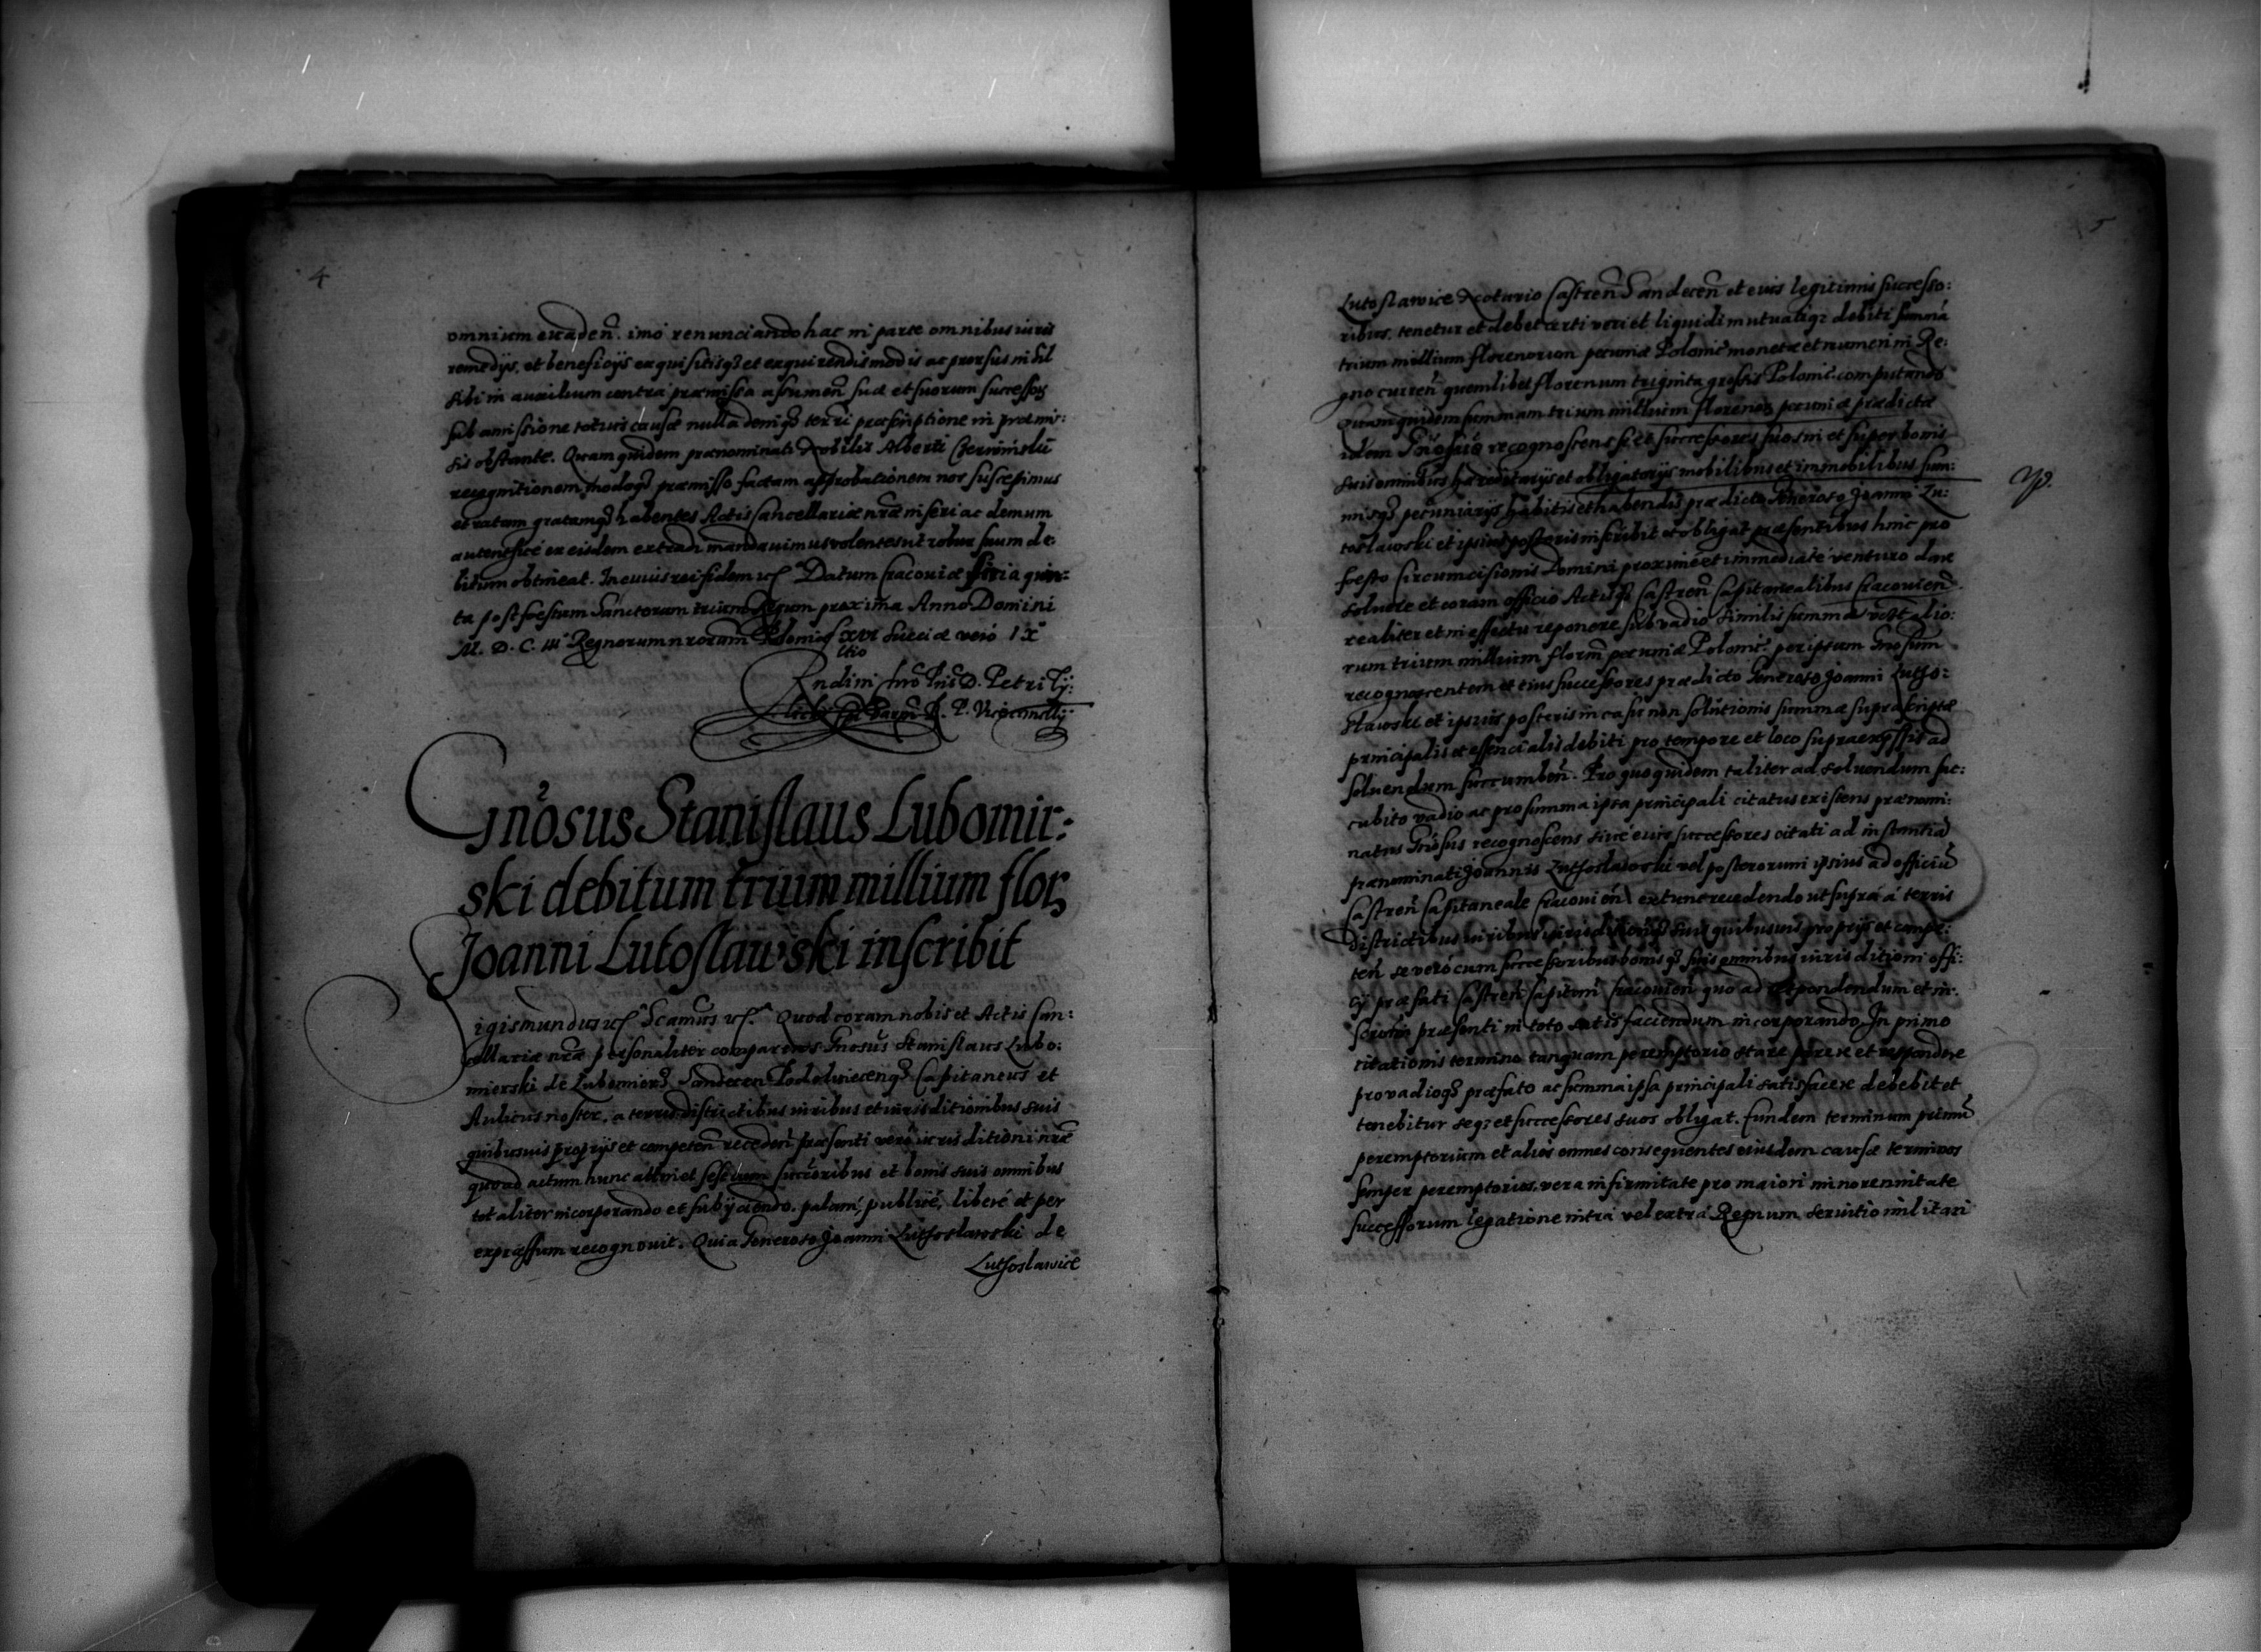 4
omnium evaden̄. imo renunciando hac in parte omnibus iuris
remedijs, et beneficijs exquisitisq3 et exquirendis modis ac prorsus nihil
sibi in auxilium contra præmissa assumen̄ suæ et suorum success
sub amissione totius causæ nulla deniq3 terri præscriptione in præmis:
sis obstante. Quam quidem prænominati Nobilis Alberti
recognitionem modoq3 præmisso factam approbationem nos suscepimus
et ratam gratamq3 habentes Actis Cancellariæ nr̄æ inseri ac demum
autenticé ex eisdem extradi mandauimus volentes ut robur suum de:
bitum obtineat. In cuius rei fidem Datum Cracouiæ feria quin:
ta post festum Sanctorum trium Regum proxima Anno Domini
M. D. C. III Regnorum nrorum Poloniæ XVI Sueciæ verò IX
D. Petri Ty:
G̃nosus Stanislaus Lubomir:
ski debitum trium millium flor
Joanni Lutoslawski inscribit
Sigismundus Quod coram nobis et Actis Can:
cellariæ nr̄æ personaliter comparens G̃nosus Stanislaus Lubo:
mierski de Lubomierz Sandecen Capitaneus et
Aulicus noster, a terris districtibus iuribus et iurisditionibus suis
quibusuis proprijs et competen̄ receden̄ præsenti verò iurisditioni nr̄æ
quoad actum hunc attinet sese cum succ̄oribus et bonis suis omnibus
totaliter incorporando et subijciendo. palam, publicé, liberé et per
expressum recognouit. Quia Generoso Joanni Luthoslawski de
Luthoslawice
5
Lutoslawice Notario Castren̄ Sandecen̄ et eius legitimis successo:
ribus. tenetur et debet certi veri et liquidi mutuatiq3 debiti summā
trium millium florenorum pecuniæ Polonic̄ monetæ et numeri in Re:
gno curren̄ quemlibet florenum triginta grossis Polonic̄. computando
Quamquidem summam trium millium florenoɼ pecuniæ prædictæ
idem G̃nosus recognoscens se et successores suos in et super bonis
suis omnibus hæreditarijs et obligatorijs mobilibus et immobilibus sum:
misq3 pecuniarijs habitis et habendis prædicto Generoso Joanni Lu:
toslawski et ipsius posteris inscribit et obligat præsentibus hinc pro
festo Circumcisionis Domini proximè et immediatè venturo dare
soluere et coram officio Actisq3 Castren̄ Capitanealibus Cracouien̄
realiter et in effectu reponere sub vadio similis summæ
rum trium millium floren̄ pecuniæ Polonic̄. per ipsum G̃nosum
recognoscentem et eius successores prædicto Generoso Joanni Lutho:
slawski et ipsius posteris in casu non solutionis summæ suprascriptæ
principalis et essencialis debiti pro tempore et loco supraexp̃ssit ad
soluendum succumben̄. Pro quo quidem taliter ad soluendum suc:
cubito vadio ac pro summa ipsa principali citatus existens prænomi:
natus G̃nosus recognoscens siue eius successores citati ad instantiā
prænominati Joannis Luthoslawski vel posterorum ipsius ad officiū
Castren̄ Capitaneale Cracouien̄ extunc recedendo ut supra à terris
districtibus iuribus iurisditionibusq3 suis quibusuis proprijs et compe:
ten̄ se verò cum successoribus bonisq3 suis omnibus iurisditioni offi:
cij præfati Castren̄ Capitan̄ Cracouien̄ quo ad respondendum et in:
præsenti in toto satisfaciendum incorporando. In primo
citationis termino tanquam peremptorio stare parere et respondere
pro vadioq3 præfato ac summa ipsa principali satisfacere debebit et
tenebitur seq3 et successores suos obligat. Eundem terminum primū
peremptorium et alios omnes consequentes eiusdem causæ terminos
semper peremptorios, vera infirmitate pro maiori minorennitate
successorum legatione intra vel extra Regnum seruitio militari